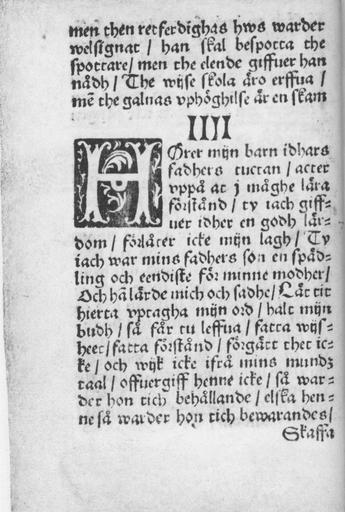 men then retferdighas hws warder
welsignat / han skal bespotta the
spottare / men the elende giffuer han
nådh / The wijse skola äro erffua /
mē the galnas vphöghilse är en skam
IIII
HÖrer mijn barn idhars
fadhers tuctan / acter
vppå at j måghe lära
förstånd / ty iach giff-
uer idher en godh lär-
dom / förlåter icke mijn lagh / Ty
iach war mins fadhers son en späd-
ling och eendiste för minne modher /
Och hā lärde mich och sadhe / Låt tit
hierta vptagha mijn ord / halt mijn
budh / så får tu leffua / fatta wijs-
heet / fatta förstånd / förgätt thet ic-
ke / och wijk icke ifrå mins mundz
taal / offuergiff henne icke / så war-
der hon tich behållande / elska hen-
ne så warder hon tich bewarandes /
Skaffa